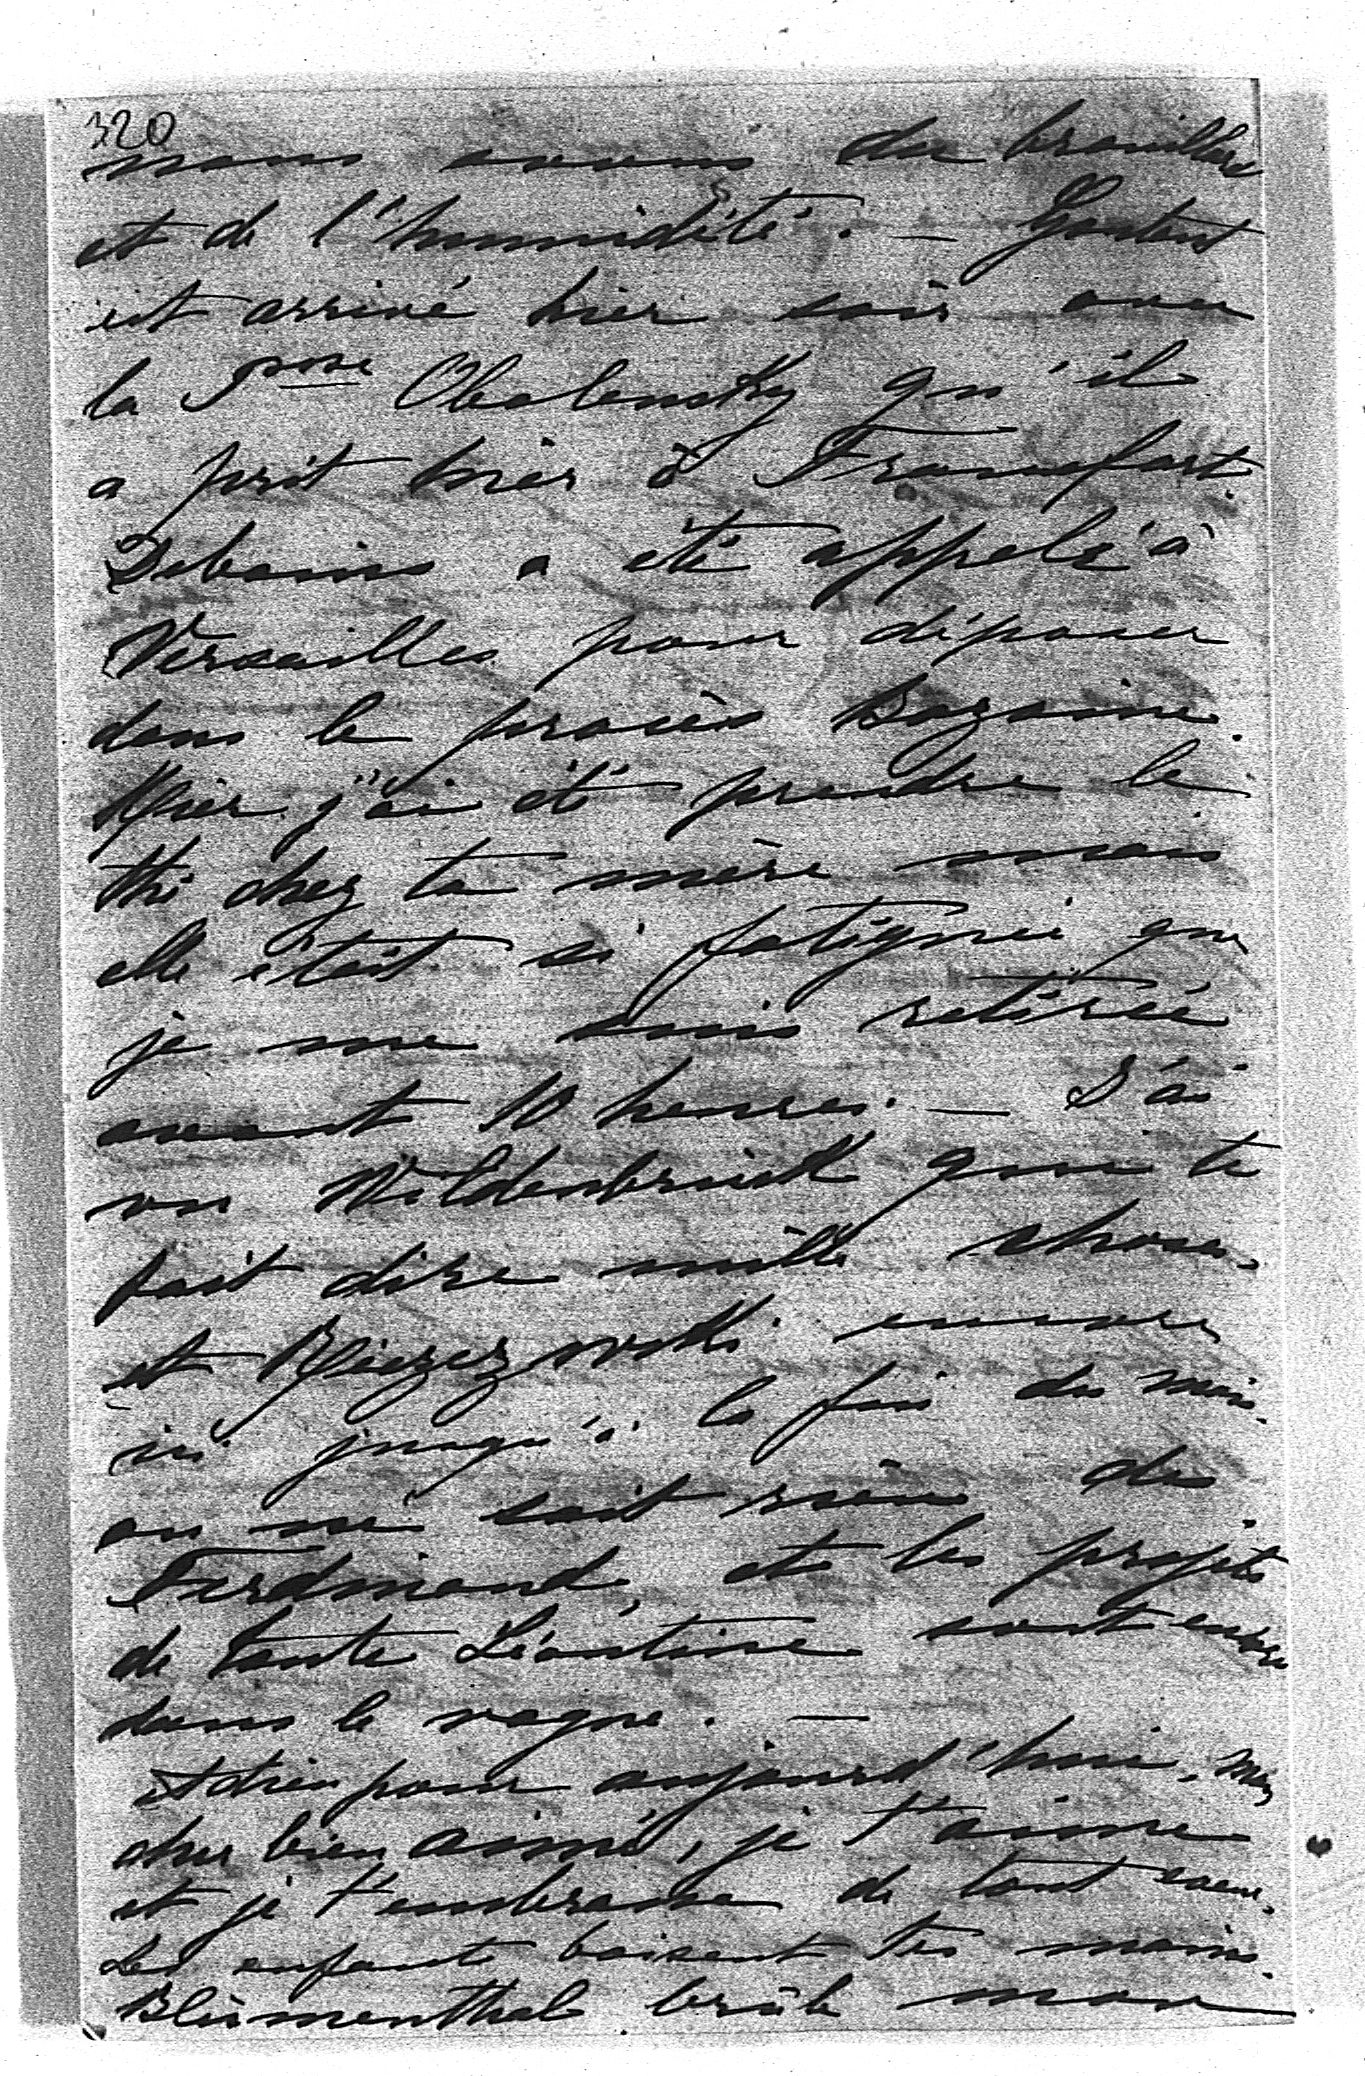 320
nous avons du brouillard
et de l'humidité. — Gontard
est arrivé hier soir avec
la Psse Obolensky qu'il
a prit hier à Francfort.
Debains a été appelé à
Versailles pour déposer
dans le procès Bazaine.
Hier j'ai été prendre le
thé chez ta mère mais
elle était si fatiguée que
je me suis retirée
avant 10 heures. — J'ai
vu Wildenbruck qui te
fait dire mille choses.
et encore
ici jusqu'à la fin du mois.
on ne sait rien des
Ferdinand, et les projets
de tante Léontine sont encore
dans le vague. —
Adieu pour aujourd'hui, mon
cher bien aimé, je t'aime
et je t'embrasse de tout coeur.
Les enfants baisent tes mains.
Blumenthal brûle mon